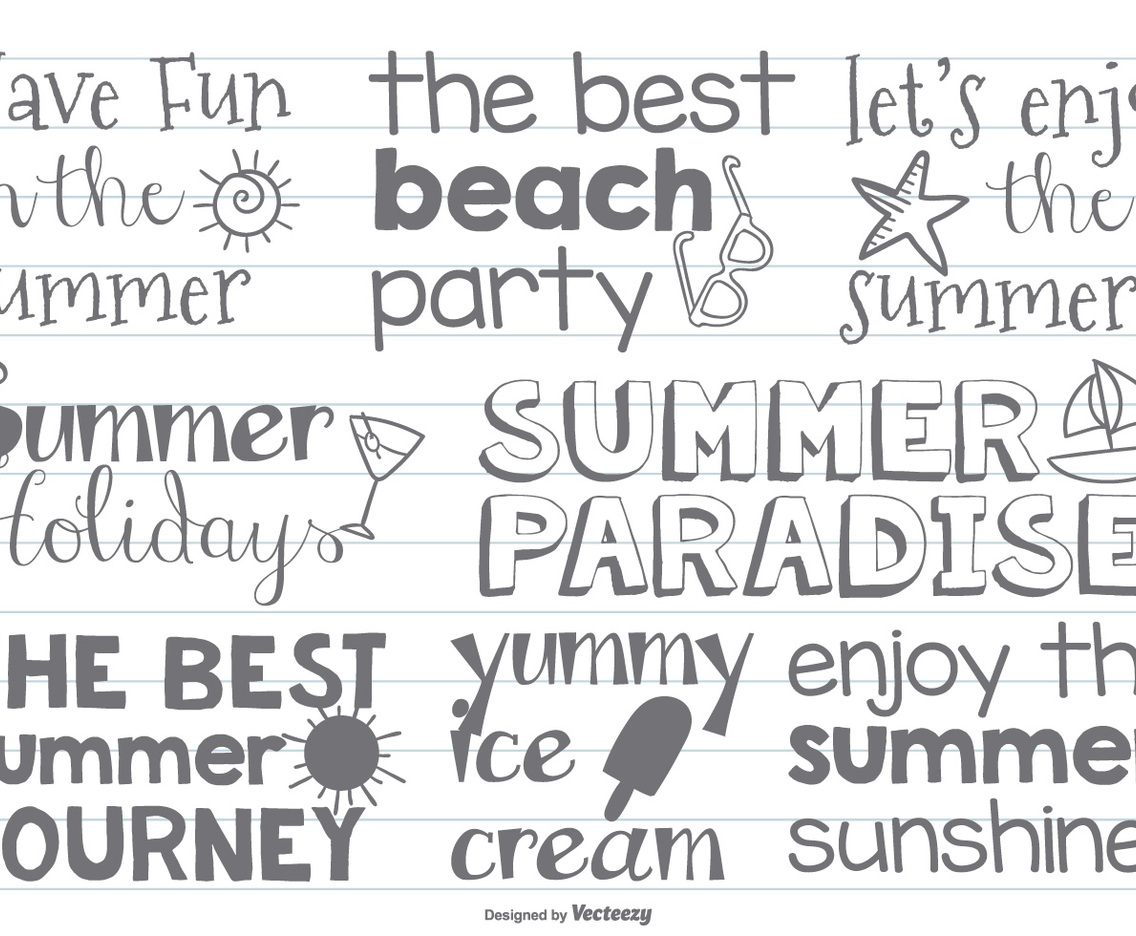 ave Fun
n the
ummer
the best
beach
party
let's enj
the
summer
summer
Holidays
SUMMER
PARADISE
HE BEST
ummer
OURNEY
yummy
ice
cream
enjoy th
summe
sunshine
Designed by Vecteezy